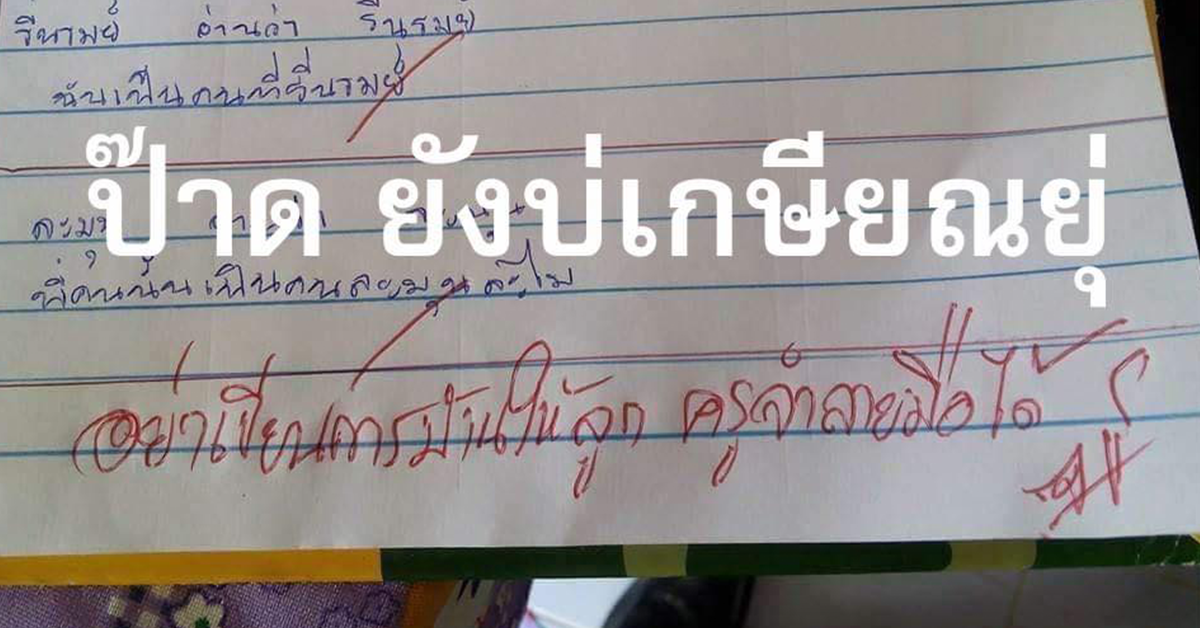 รีนรมย์ อ่านว่า รีนรมย์
ฉันเป็นคนที่รื่นรมย์
ป๊าด ยังบ่เกษียณยุ่
ละมุน
พี่คนนั้นเป็นคนละมุนละไม
อย่าเขียนการบ้านให้ลูก ครูจำลายมือได้